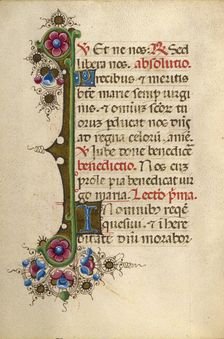 Et ne nos. R Sed
libera nos. absolutio.
Precibus et meritis
bte marie semp virgi
nis. et omniū scōr tu
orum pducat nos dñs
ad regna celorū. amē.
Y Iube dōne benedicē
benedictio. Nos cū
prole pia benedicat uir
go maria. Lectio p̄ma.
IN omnibȝ reqē
quesiui. et ī here
ditate dñi morabor